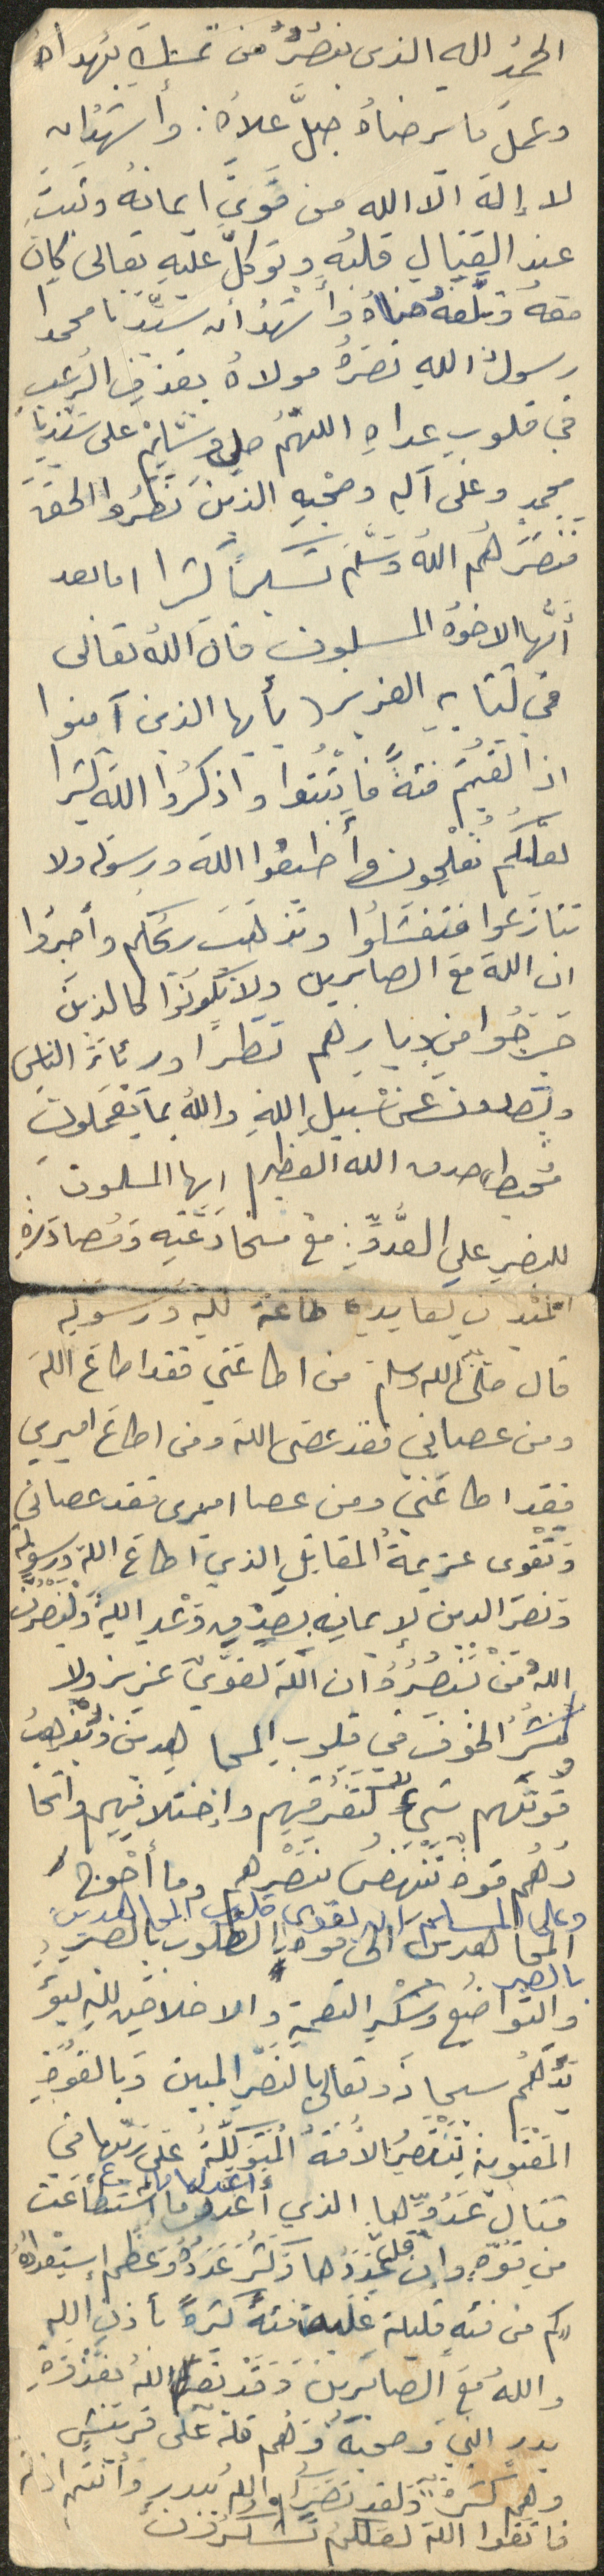 الحمدُ لله الذى ينصُرُ من تمسّك بهداهُ
وعملَ ما يرضاهُ جلَّ علاهُ: وأشهَدُ ان
لا إلهَ الّا الله من قَوّى ايمانهُ وثبّتَ
عند القتالِ قلبُه وتوكّلَّ عليهِ تعالى كانَ
معَهُ وبلّغهُ مناهُ وأشهَدُ أن سَيّدَنا محمداً
رسولُ اللهِ نصَرَهُ مولاهُ بقذفِ الرُعبِ
في قلوبِ عداهِ اللهُمَ صلِ وسَلِّم على سَيّدِنا
محمدٍ وعلى آلهِ وصحبِهِ الذينَ نَصَرُوا الحقَّ
فنَصَرَهُم اللهُ وَسَلّمَ تسليماً كثيرا اما بعد
أيُّها الاخوهُ المسلمون قال اللهُ تعالى
في كتابهِ العزيز (يأيها الذين آمنوا
اذا لقيتُم فئةً فاثبُتُوا واذكرُوا اللهَ كثيرا
لعلكُم تُفلِحون وأطيعُوا اللهَ ورسولَه ولا
تنازَعوا فتفشَلُوا وتذهَبَ ريحُكم وأصبرُوا
ان اللهَ مَعَ الصابرين ولا تكُونُوا كالذينَ
خَرَجُوا مِن ديارِهم بَطَراً ورئاءَ الناسِ
ويَصدونَ عن سَبيلِ اللهِ واللهُ بما يَعمَلونَ
مُحيط) صدق الله العظيم ايها المسلمون
للنصرِ على العدُّوِّ: معَ مخادَعَتِهِ وَمُصادَرةِ
الجُنديِ لقايدِهِ طاعة للهِ ورسولِه
قال صلى الله وسلم من اطاعَني فقد اطاعَ اللهَ
ومن عصاني فقد عصَى اللهَ ومن اطاعَ اميري
فقد اطاعَنيْ ومن عصا اميرى فقد عصانى
وتَقْوى عزيمةُ المقاتلِ الذي اطاعَ اللهَ ورسولَه
ونصرَ الدين لإيمانِه بصِدْقِ وَعْدِ اللهِ ولَينصُرَنَّ
اللهُ مَنْ يَنصُرُهُ ان اللهَ لقوَيٌ عزيز ولا
يَنشُرُ الخوفَ في قلوبِ المجاهدين ويُذهِبُ
قوتَهم شيءٌ كتفرُقِهم وإختلافِهِم واتحا
دُهُم قوةٌ تَنْهَضُ بنَصْرِهم وما أحْوجَ
وعلى المسلم ان يقوى قلوب المجاهدين
المجاهدين الى قوةِ القلوب بالصبرِ
بالصبر
والتواضُعِ وشُكْرِ النعمةِ والاخلاصِ للهِ ليؤَ
يّدَهُم سبحانَه وتعالى بالنصرِ المبين وبالقوةِ
المعْنَويةِ تَنتَصِرُ الأمةُ المُتَوكِلَةُ على ربّها في
قتالِ عَدُوِّها الذي أعدوا ما اسْتطاعَت
من قوّةٍ وإن قَلَّ عَدَدُها وكَثُرَ عَدَدُهُ وعَظُمَ إستِعْدادُهُ
(كم من فئهٍ قليلةٍ غلَبَت فئةً كثيرةً بأذنِ اللهِ
واللهُ مَعَ الصابرين وقَد نصَرَ اللهُ بغَزْوَةِ
بدرٍ النبي وصحبَهُ وهُم قلة على قريشٍ
وهم كَثرَة: ولقد نصَرَكُم اللهُ ببدرٍ وأنتم اذلة
فاتقوا اللهَ لعلكُم تَشكُرون